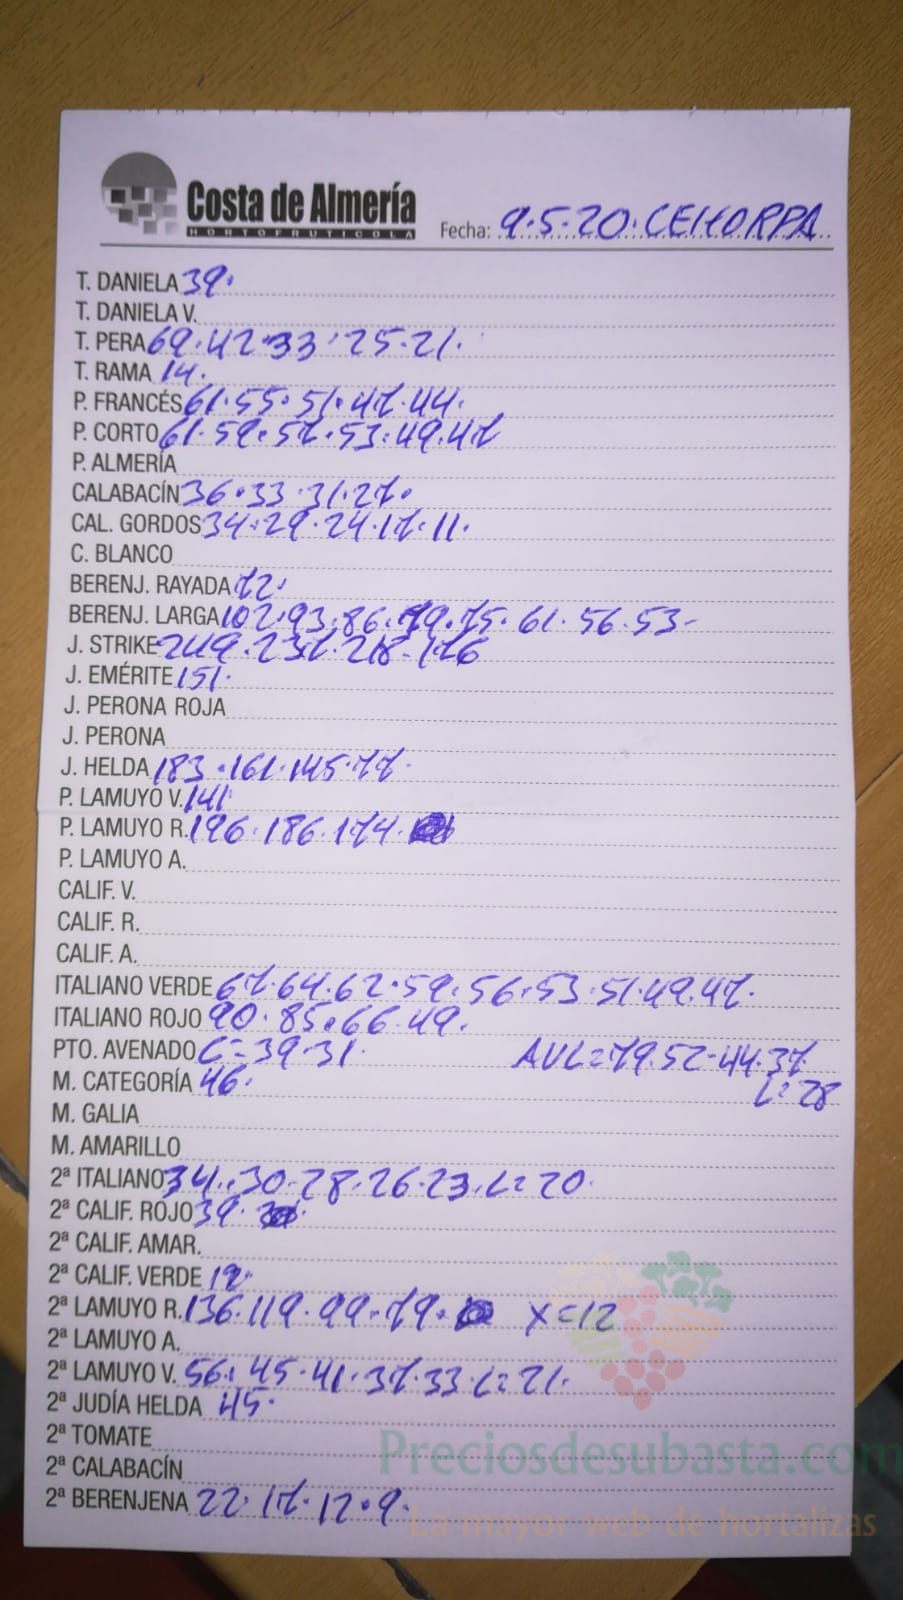 Costa de Almería
HORTOFRUTICOLA
Fecha: 9.5.20. CEHORPA
T. DANIELA 39.
T. DANIELA V.
T. PERA 69.42.33.25.21.
T. RAMA 14.
P. FRANCÉS 61.55.51.47.44.
P. CORTO 61.59.57.53.49.47
P. ALMERÍA
CALABACÍN 36.33.31.27.
CAL. GORDOS 34.29.24.17.11.
C. BLANCO
BERENJ. RAYADA 72.
BERENJ. LARGA 102.93.86.79.75.61.56.53-
J. STRIKE 249.237.218-176
J. EMÉRITE 151.
J. PERONA ROJA
J. PERONA
J. HELDA 183.161.145.77.
P. LAMUYO V. 141
P. LAMUYO R. 196.186.174.
P. LAMUYO A.
CALIF. V.
CALIF. R.
CALIF. A.
ITALIANO VERDE 67.64.62.59.56.53.51.49.47.
ITALIANO ROJO 90.85.66.49.
PTO. AVENADO C=39.31. AVL=79.52-44.37
L=28
M. CATEGORÍA 46.
M. GALIA
M. AMARILLO
2ª ITALIANO 34.30.28.26.23.L=20.
2ª CALIF. ROJO 39.
2ª CALIF. AMAR.
2ª CALIF. VERDE 12.
2ª LAMUYO R. 136.119.99.79. X=12
2ª LAMUYO A.
2ª LAMUYO V. 56.45.41.37.33.L=21.
2ª JUDÍA HELDA 45.
2ª TOMATE
Preciosdesubasta.com
2ª CALABACÍN
2ª BERENJENA 22.17.12.9.
La mayor web de hortalizas